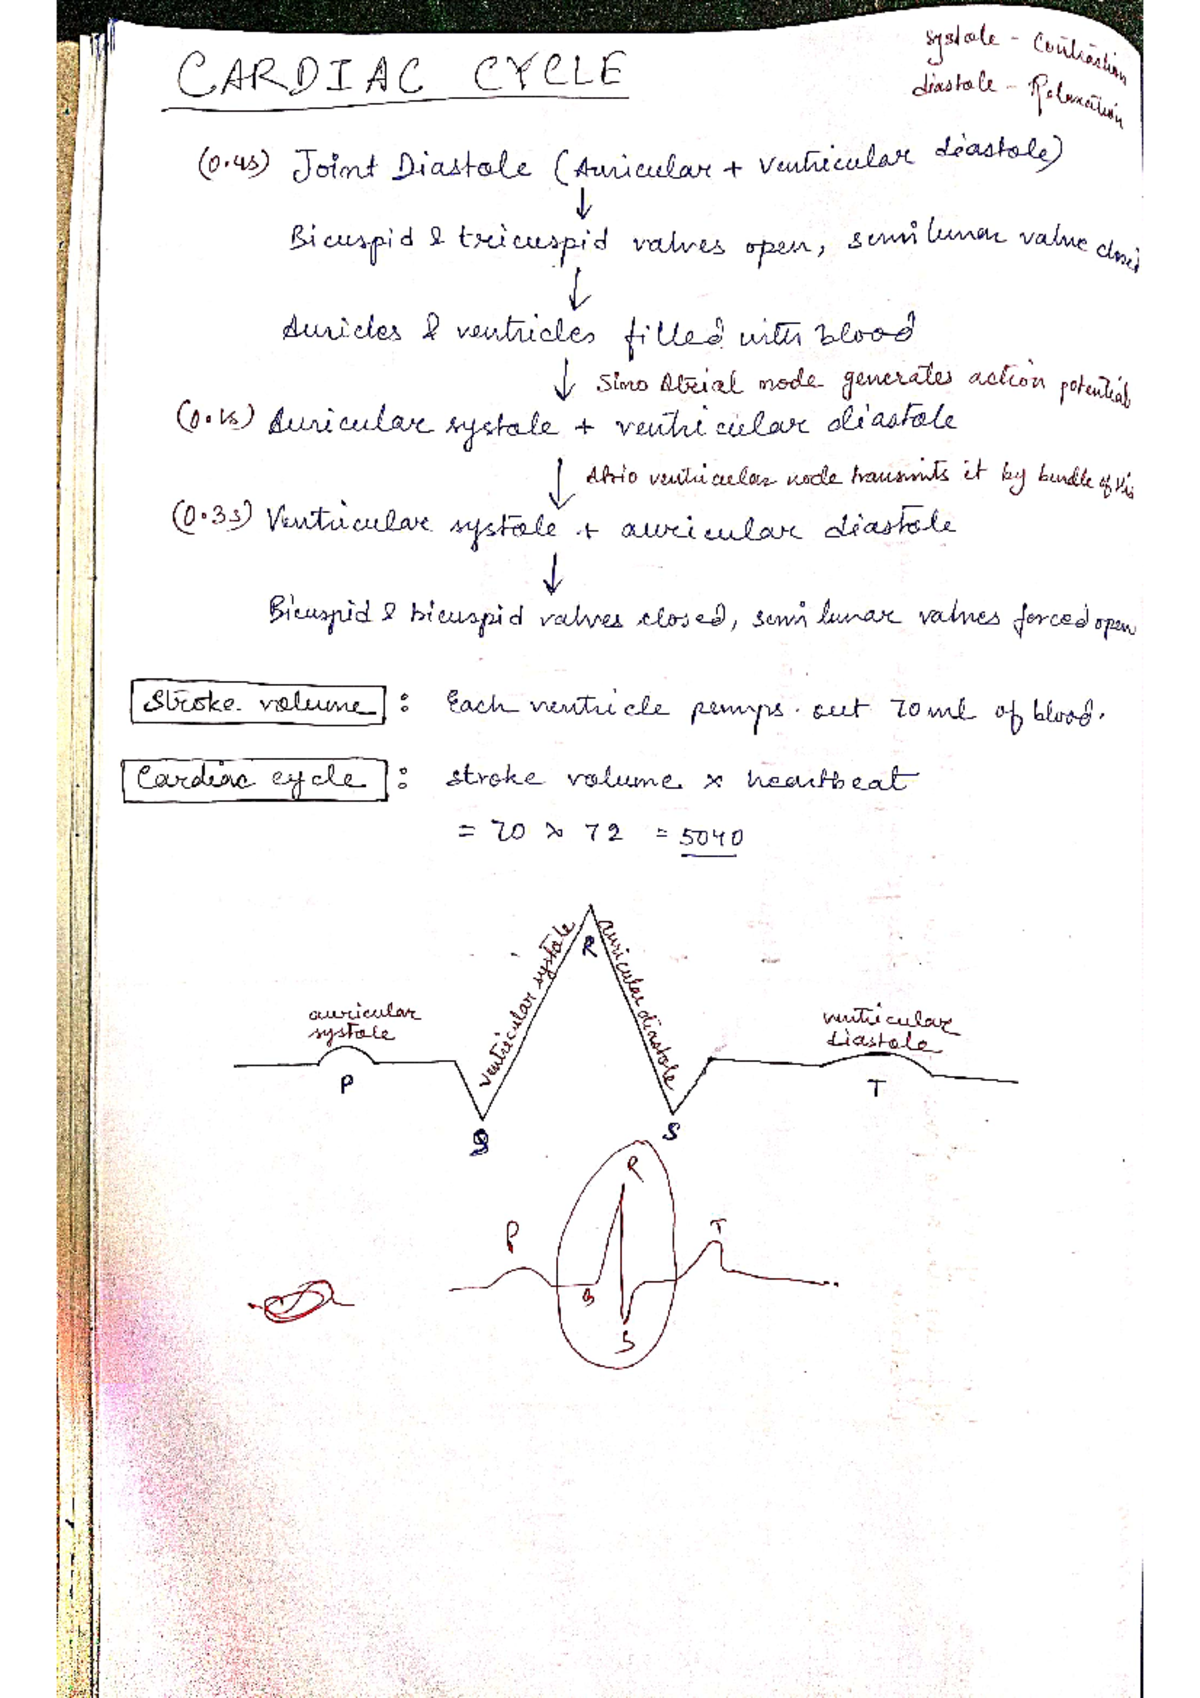 CARDIAC CYCLE
systole - Contraction
diastole - Relaxation
(0.4s) Joint Diastole (Auricular + Ventricular diastole)
↓
Bicuspid & tricuspid valves open, semi lunar valve closed
↓
Auricles & ventricles filled with blood
↓ Sino Atrial node generates action potential
(0.1s) Auricular systole + ventricular diastole
↓ Atrio ventricular node transmits it by bundle of His
(0.3s) Ventricular systole + auricular diastole
↓
Bicuspid & tricuspid valves closed, semi lunar valves forced open
Stroke volume : Each ventricle pumps out 70 ml of blood.
Cardiac cycle : stroke volume × heartbeat
= 70 × 72 = 5040
ventricular systole
R
auricular diastole
auricular
systole
ventricular
diastole
P
T
Q
S
R
P
T
S